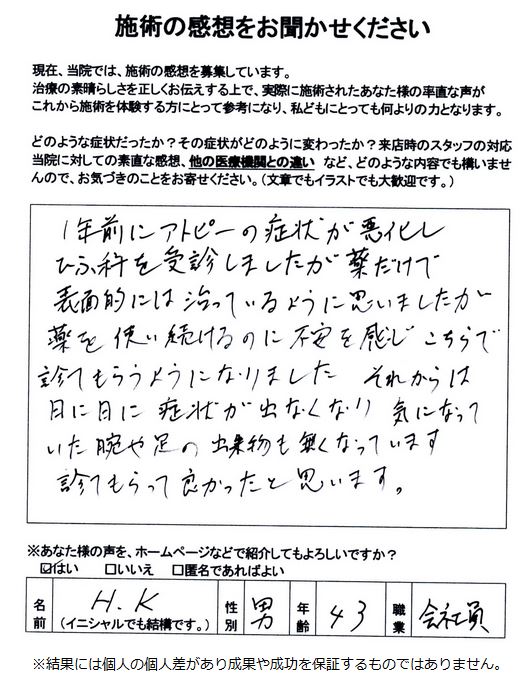 施術の感想をお聞かせください
現在、当院では、施術の感想を募集しています。
治療の素晴らしさを正しくお伝えする上で、実際に施術されたあなた様の率直な声が
これから施術を体験する方にとって参考になり、私どもにとっても何よりの力となります。
どのような症状だったか？その症状がどのように変わったか？来店時のスタッフの対応
当院に対しての素直な感想、他の医療機関との違い など、どのような内容でも構いませ
んので、お気づきのことをお寄せください。（文章でもイラストでも大歓迎です。）
1年前にアトピーの症状が悪化し
ひふ科を受診しましたが薬だけで
表面的には治っているように思いましたが
薬を使い続けるのに不安を感じこちらで
診てもらうようになりました それからは
日に日に症状が出なくなり 気になって
いた腕や足の出来物も無くなっています
診てもらって良かったと思います。
※あなた様の声を、ホームページなどで紹介してもよろしいですか？
☑はい □いいえ □匿名であればよい
名前 H.K （イニシャルでも結構です。） 性別 男 年齢 43 職業 会社員
※結果には個人の個人差があり成果や成功を保証するものではありません。